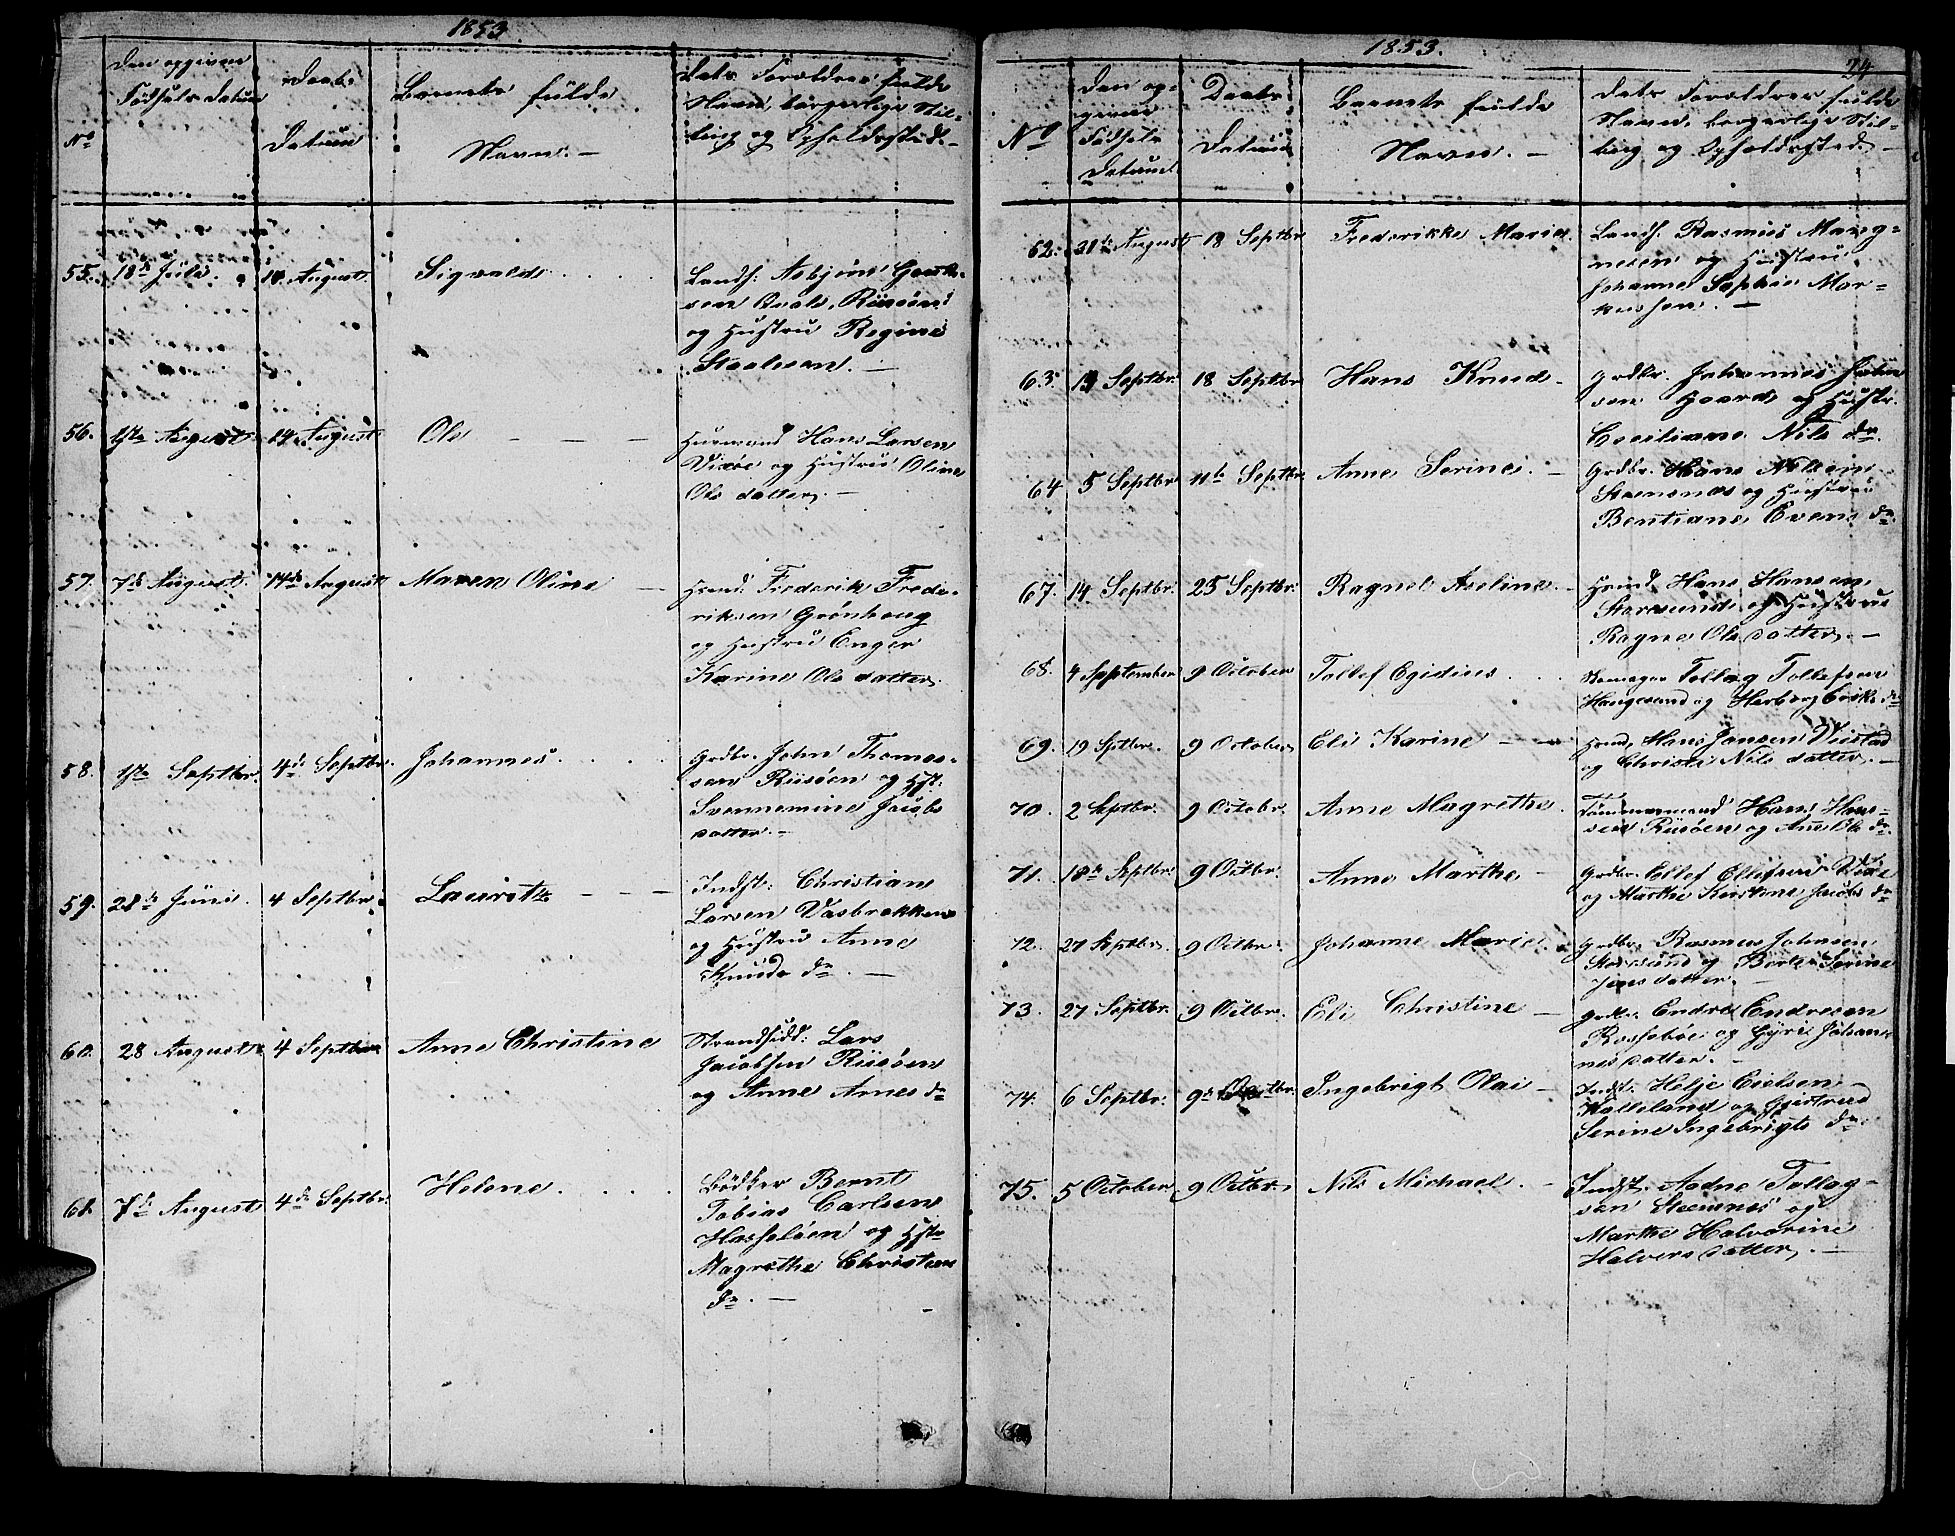 1853
No
Den opgivne
Fødsels datum
Daabs
Datum
Barnets fulde
Navn. —
Dets Forældres fulde
Navn, borgerlige Stil-
ling og Opholdssted. —
55. 18de Juli. 14 August. Sigvald . . . .
Landh. Asbjørn
sen Qvale, Riisøen
og Hustru Regine
Staalesen. —
56. 1ste August 14 August Ole — — —
Huusmand Hans Larsen
Vixøe og Hustru Oline
Ols datter. —
57. 7de August 14de August Maren Oline —
Huusmd. Frederik Frede-
riksen Grønhoug
og Hustru Enger
Karine Ols datter.
58. 1ste Septbr. 4de Septbr. Johannes . . . .
Grdbr. John Thomas-
sen Riisøen og Hst.
Svennemine Jacobs
datter. —
59. 28de Juni. 4 Septbr. Lauritz — — —
Indst: Christian
Larsen Vasbrekken
og Hustru Anne
Knuds dr. —
60. 28 August 4 Septbr Anne Christine
Strandsidd: Lars
Jacobsen Riisøen
og Anne Arnes dr
61. 7de August 4de Septbr. Helene . . . .
Bødker Bernt
Tobias Carlsen
Hasseløen og Hst
Magrethe Christens
dr. —
1853.
24
No
Den op-
givne
Fødsels
Datum.
Daabs
Datum
Barnets fulde
Navn. —
Dets Forældres fulde
Navn, borgerlige Stil-
ling og Opholdssted —
62. 31te August 18 Septbr Frederikke Marie.
Landh. Rasmus Mang-
nesen og Hustru
Johanne Sophie Mar-
kussen. —
63. 13 Septbr. 18 Septbr Hans Knud -
Grdbr. Johannes John
sen Gaard og Hustr.
Ceciliane Nils dr.
64 5 Septbr 11te Septbr Anne Serine. —
Grdbr. Hans Nilsen
Steensnæs og Hustru
Bentiane Evens dr.
67. 14 Septbr. 25 Septbr. Ragnel Aseline. —
Husmd. Hans Hansen
Storesund og Hustrue
Ragne Ols datter. —
68. 4 September 9 October Tollef Egidius . . .
Tollag Tollefsen
Haugesund og Herborg Eriks dr
69. 19 Sptbr. 9 October Eli Karine — —
Husmd, Hans Jansen
og Christi Nils datter. —
70. 2 Septbr. 9 Octobr. Anne Magrethe.
Tømmermand Hans Han-
sen Riisøen og Ane Ols dr.
71. 18de Septbr. 9 Octbr. Anne Marthe —
Grdbr. Ellef Ellefsen Vixe
og Marthe Kirstine Jacobs dr
72. 27 Septbr. 9 Octbr. Johanne Marie.
Grdbr. Rasmus Johnsen
Storesund og Berte Serine
Jens datter. —
73. 27 Septbr. 9 Octbr. Eli Christine —
Grdbr. Endre Endresen
Rossebøe og Gyri Johan
nes datter. —
74. 6 Septbr. 9de Octbr. Ingebrigt Olai —
Indst. Helje Eielsen
Kalleland og Hustrue
Serine Ingebrigts dr
75. 5 October 9 Octbr. Nils Michael. —
Indst: Aadne Tollag-
sen Steensnæs og
Marthe Halvorine
Halvors datter. —